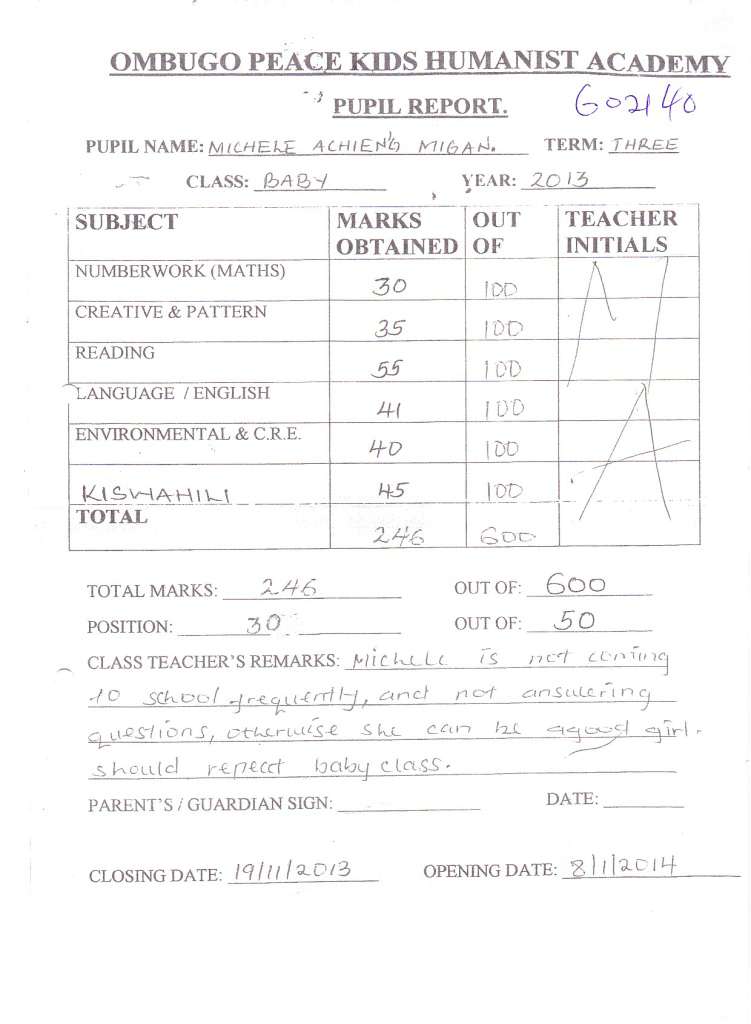 OMBUGO PEACE KIDS HUMANIST ACADEMY
PUPIL REPORT. G02140
PUPIL NAME: MICHELE ACHIENG MIGAN. TERM: THREE
CLASS: BABY YEAR: 2013
SUBJECT MARKS OBTAINED OUT OF TEACHER INITIALS
NUMBERWORK (MATHS) 30 100
CREATIVE & PATTERN 35 100
READING 55 100
LANGUAGE / ENGLISH 41 100
ENVIRONMENTAL & C.R.E. 40 100
KISWAHILI 45 100
TOTAL 246 600
TOTAL MARKS: 246 OUT OF: 600
POSITION: 30 OUT OF: 50
CLASS TEACHER'S REMARKS: Michele is not coming
to school frequently, and not answering
questions, otherwise she can be agood girl.
should repeat baby class.
PARENT'S / GUARDIAN SIGN: DATE:
CLOSING DATE: 19/11/2013 OPENING DATE: 8/1/2014